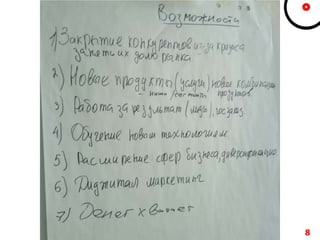 Возможности
1) Закрытие конкурентов из-за кризиса
занять их долю рынка
2) Новые продукты (услуги) новые комбинации
ниши/сегменты продуктов
3) Работа за результат (
4) Обучение новым технологиям
5) Расширение сфер бизнеса, диверсификация
6) Диджитал маркетинг
7) Денег хватает
8